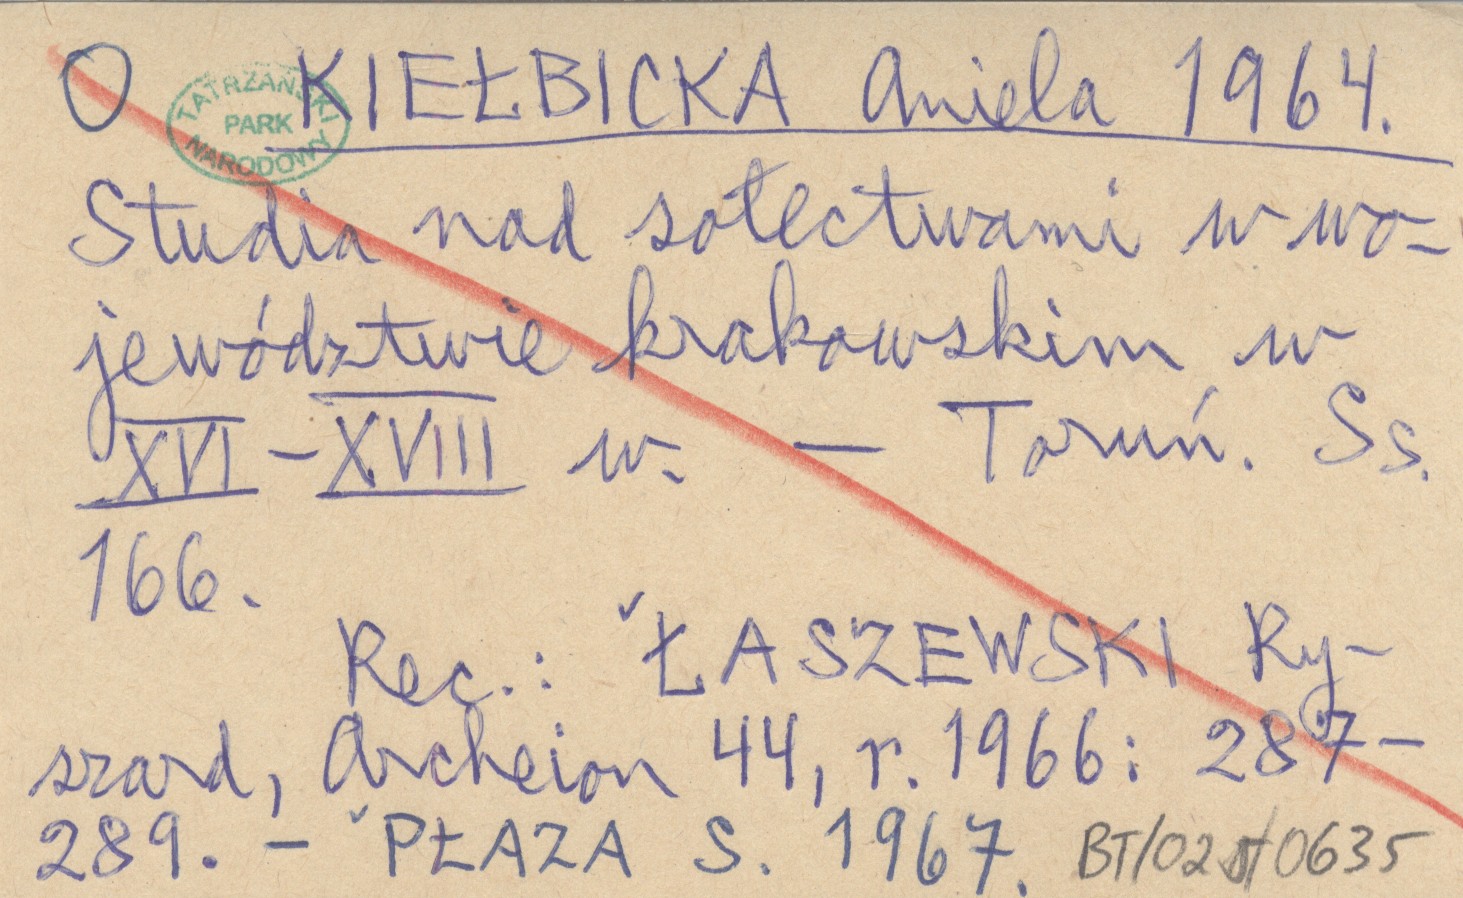 O KIEŁBICKA Aniela 1964.
TATRZAŃSKI
PARK
NARODOWY
Studia nad sołectwami w wo-
jewództwie krakowskim w
XVI - XVIII w. — Toruń. Ss.
166.
Rec.: ˇŁASZEWSKI Ry-
szard, Archeion 44, r. 1966: 287-
289. - ˇPŁAZA S. 1967. BT/02 /0635